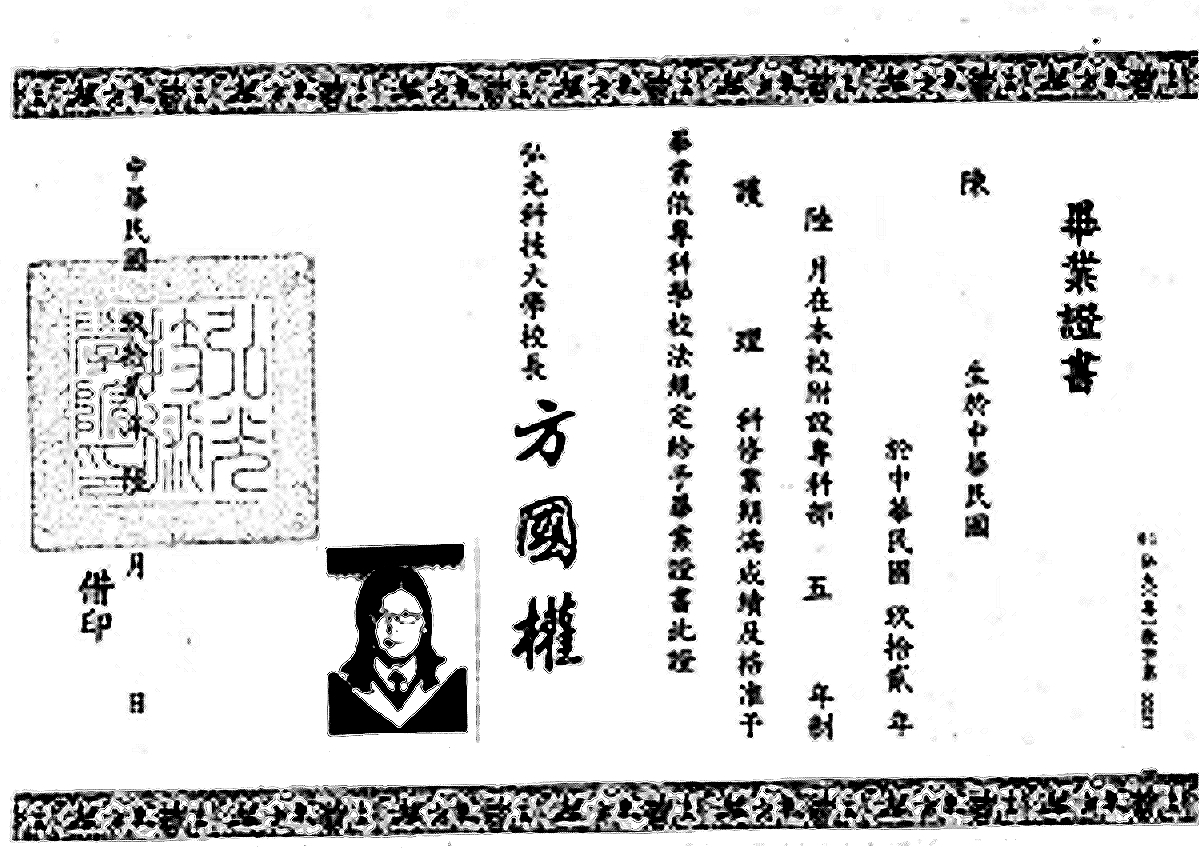 畢業證書
陳 生於中華民國
於中華民國 玖拾貳 年
陸 月在本校附設專科部 五 年制
護 理 科修業期滿成績及格准予
畢業依專科學校法規定給予畢業證書此證
弘光科技大學校長 方國權
中華民國 玖拾貳年 陸 月 日
借印